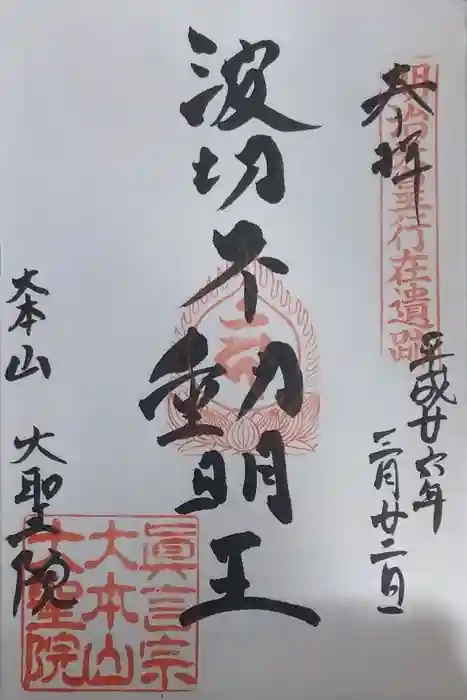 奉拝
明治天皇行在遺跡
平成廿六年
三月廿二日
波切不動明王
大本山 大聖院
眞言宗
大本山
大聖院